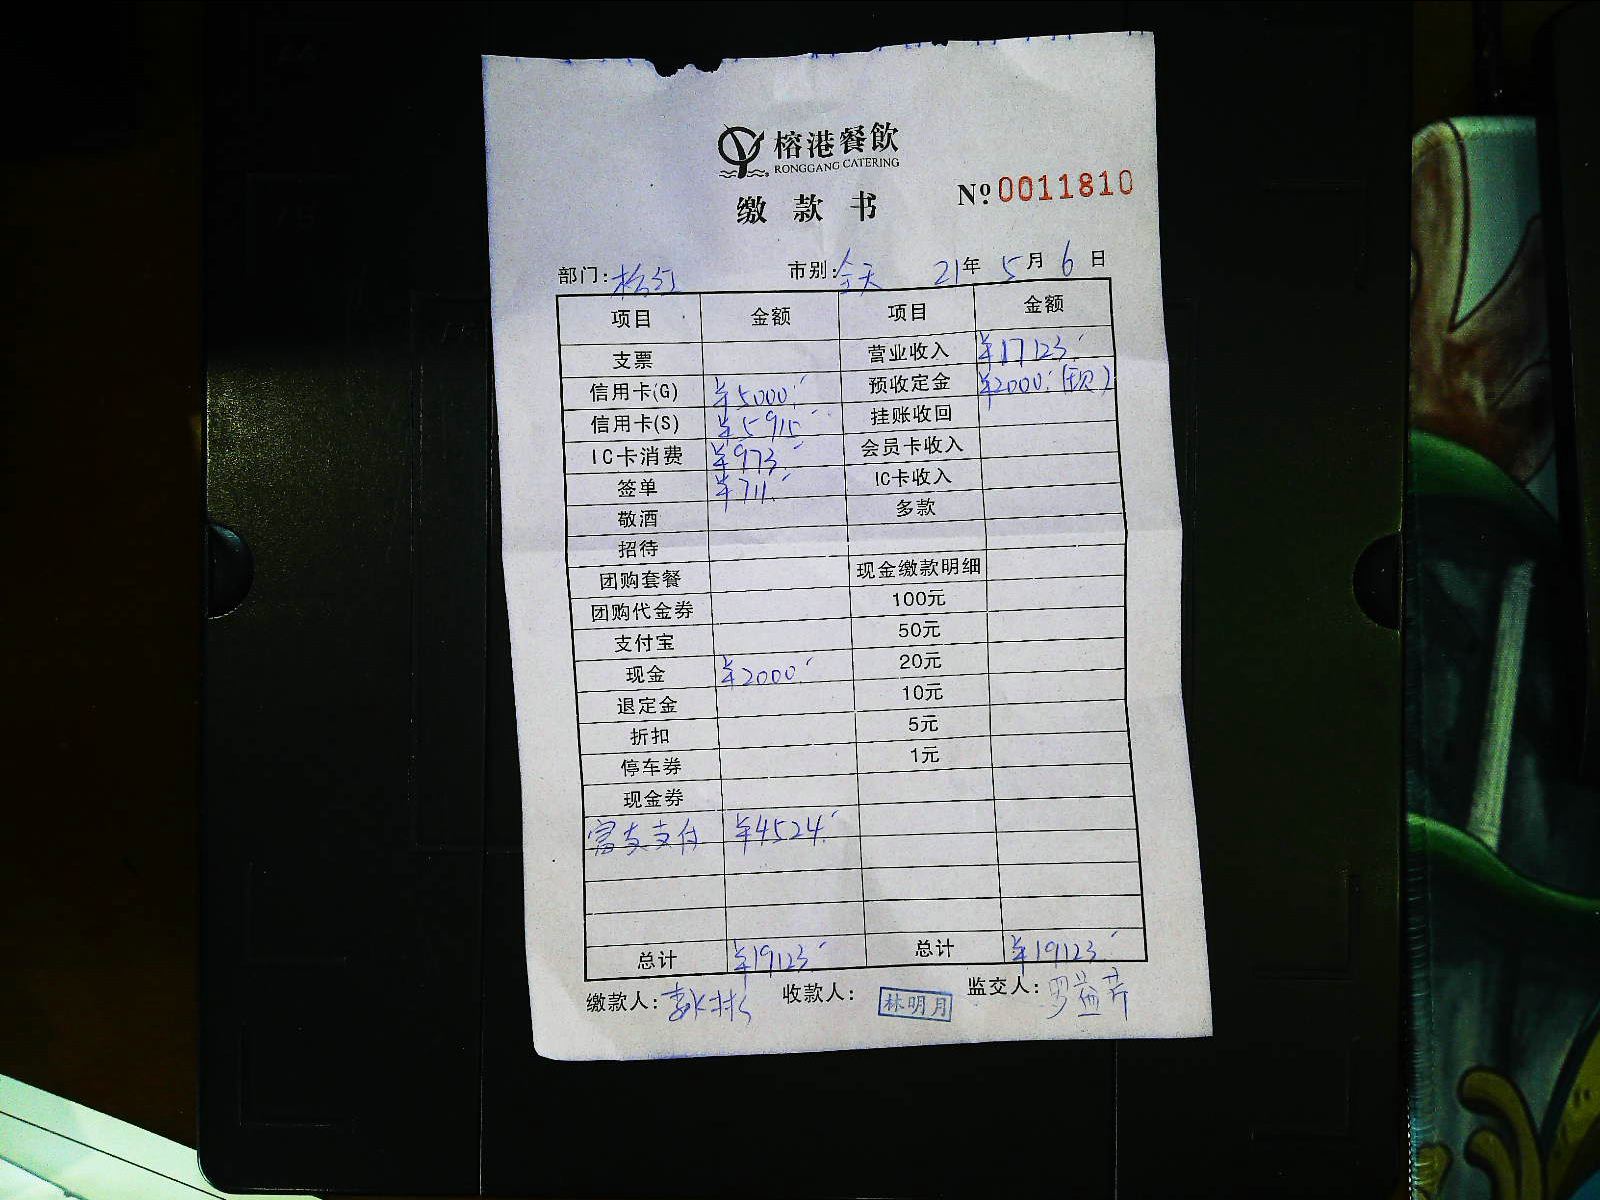 榕港餐飲
RONGGANG CATERING
缴款书 Nº 0011810
部门: 市别:全天 21年 5月 6日
项目 金额 项目 金额
支票 营业收入 ¥17123.
信用卡(G) ¥5000. 预收定金 ¥2000.(现)
信用卡(S) ¥5915 挂账收回
IC卡消费 ¥973. 会员卡收入
签单 ¥711. IC卡收入
敬酒 多款
招待
团购套餐 现金缴款明细
团购代金券 100元
支付宝 50元
现金 ¥2000. 20元
退定金 10元
折扣 5元
停车券 1元
现金券
富友支付 ¥4524.
总计 ¥19123. 总计 ¥19123.
缴款人: 收款人: 林明月 监交人:罗益芹